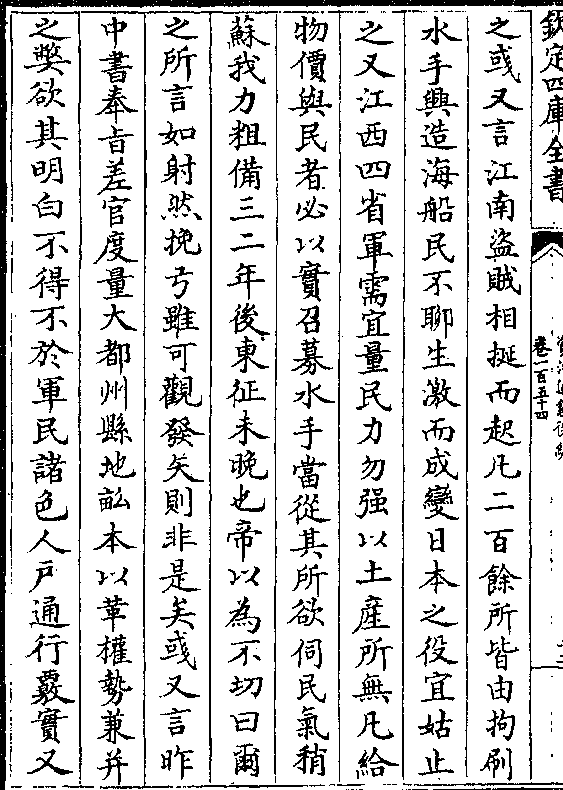 欽定四庫全書
卷一百五十四
之彧又言江南盜賊相挻而起凡二百餘所皆由拘刷
水手興造海船民不聊生激而成變日本之役宜姑止
之又江西四省軍需宜量民力勿强以土産所無凡給
物價與民者必以實召募水手當從其所欲伺民氣稍
蘇我力粗備三二年後東征未晚也帝以為不切曰爾
之所言如射然挽弓雖可觀發矢則非是矣彧又言昨
中書奉旨差官度量大都州縣地畝本以革權勢兼并
之弊欲其明白不得不於軍民諸色人戸通行覈實又